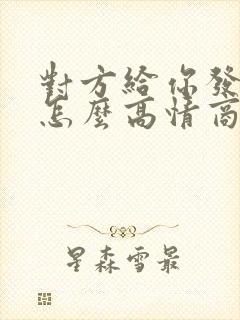 對方給你發
怎麼高情商
星森雪最